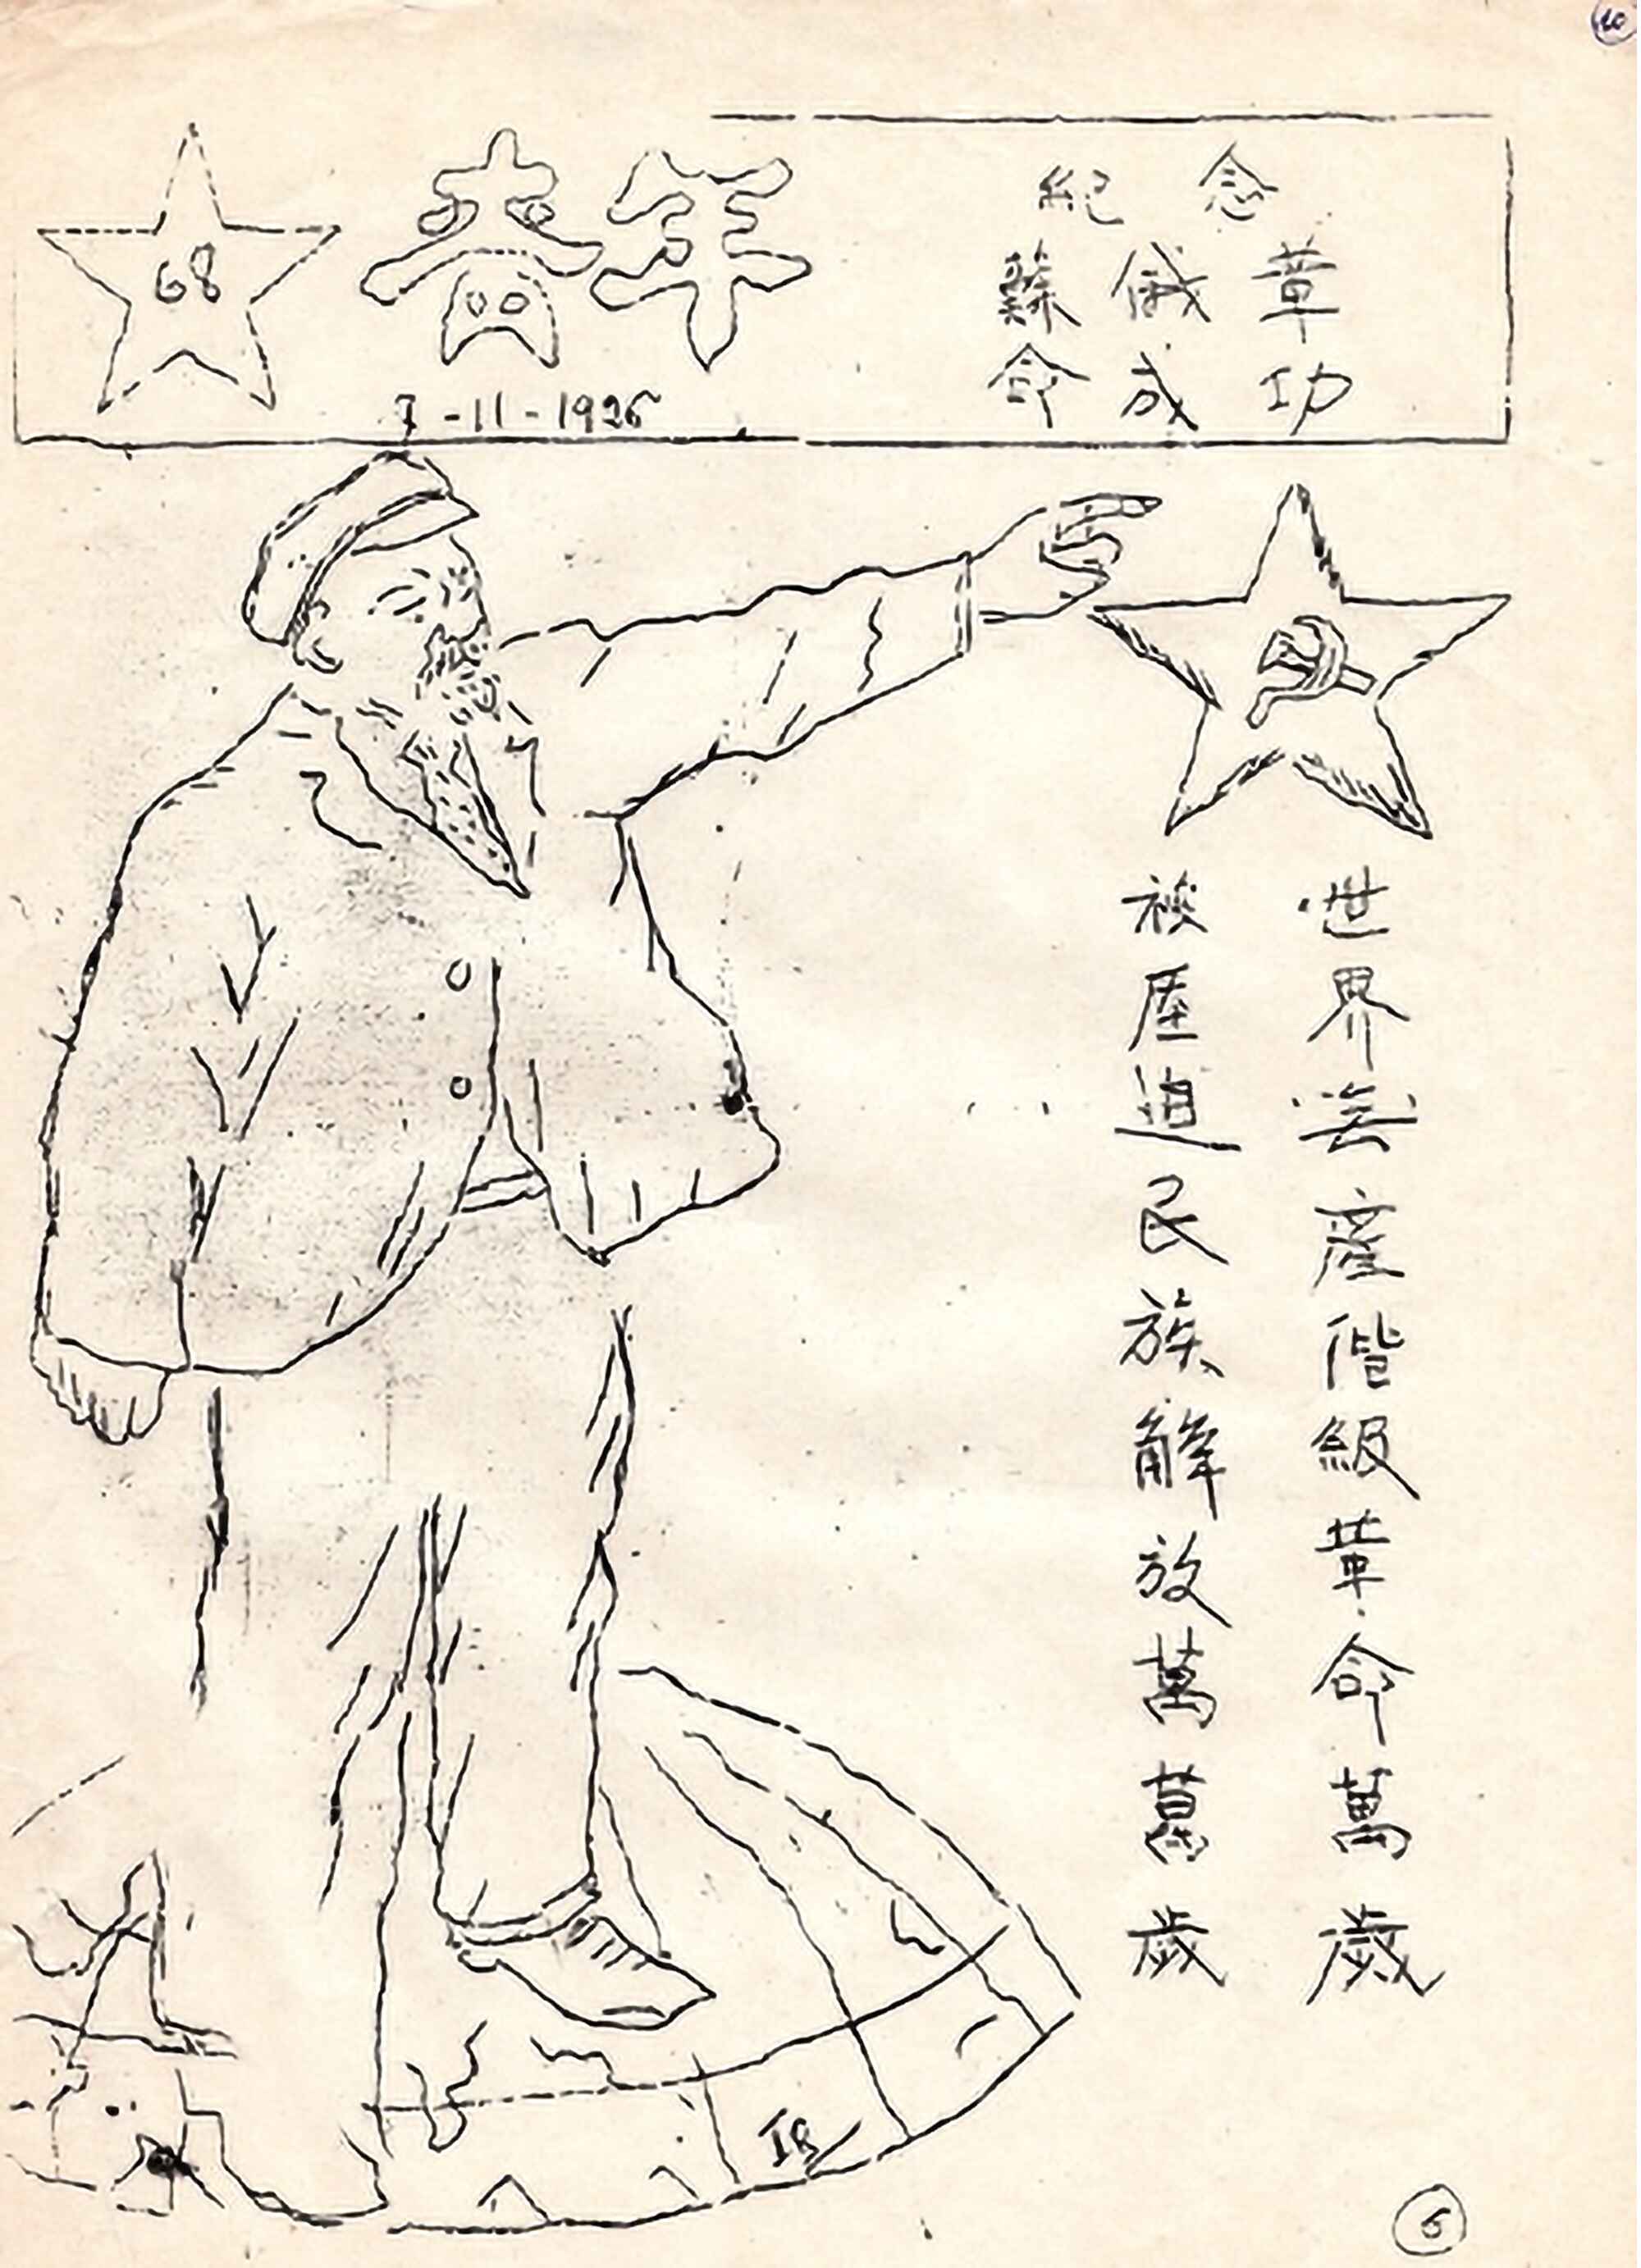 68
青年
7-11-1926
紀念
蘇俄革
命成功
世界無產偕級革命萬歲
被壓迫民族解放萬萬歲